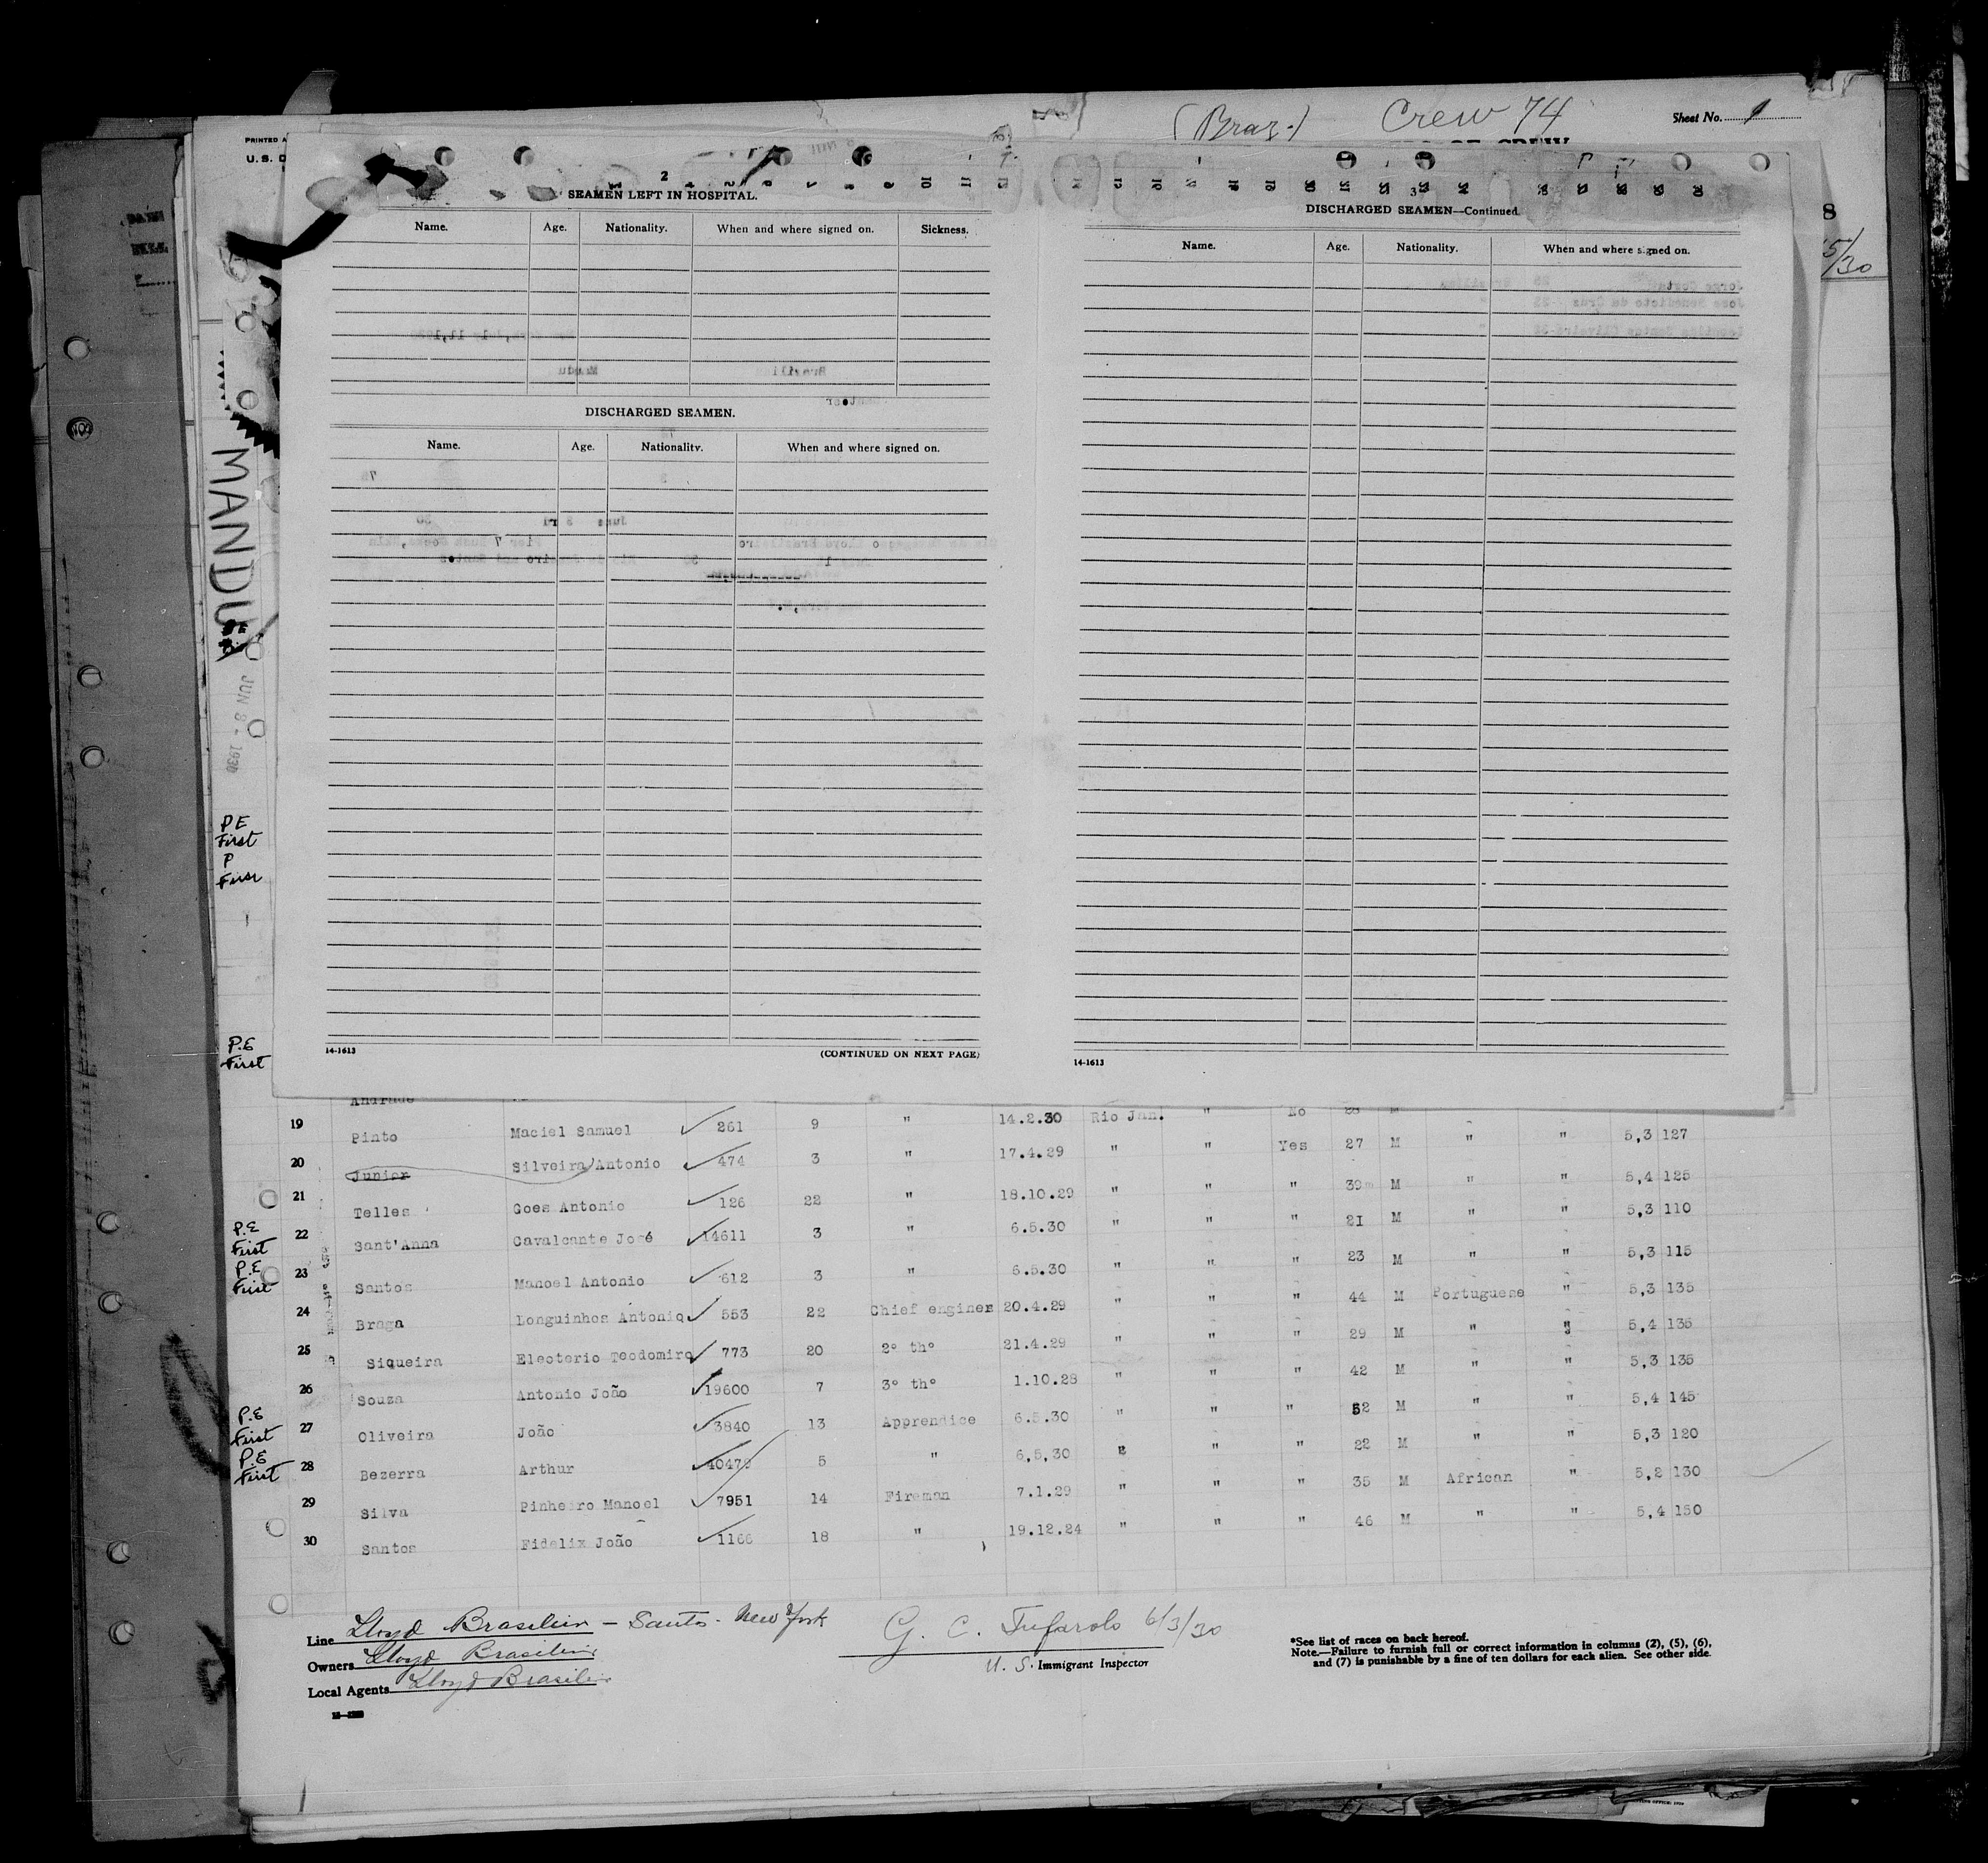 (Braz.) Crew 74 Sheet No. 1
PRINTED A
U.S. D
8
5/30
MANDU
JUN 8 - 1930
2
SEAMEN LEFT IN HOSPITAL.
Name. Age. Nationality. When and where signed on. Sickness.
DISCHARGED SEAMEN.
Name. Age. Nationality. When and where signed on.
14-1613 (CONTINUED ON NEXT PAGE)
3
DISCHARGED SEAMEN—Continued.
Name. Age. Nationality. When and where signed on.
14-1613
PE
First
P
First
P.E
First
Andrade
19 Pinto Maciel Samuel 261 9 " 14.2.30 Rio Jan. " No 28 M
20 Junior Silveira Antonio 474 3 " 17.4.29 " " Yes 27 M " " 5,3 127
21 Telles Goes Antonio 126 22 " 18.10.29 " " " 39 M " " 5,4 125
P.E First 22 Sant'Anna Cavalcante José 14611 3 " 6.5.30 " " " 21 M " " 5,3 110
P.E First 23 Santos Manoel Antonio 612 3 " 6.5.30 " " " 23 M " " 5,3 115
24 Braga Longuinhos Antonio 553 22 Chief enginer 20.4.29 " " " 44 M Portuguese " 5,3 135
25 Siqueira Eleoterio Teodomiro 773 20 2º thº 21.4.29 " " " 29 M " " 5,4 135
26 Souza Antonio João 19600 7 3º thº 1.10.28 " " " 42 M " " 5,3 135
P.E First 27 Oliveira João 3840 13 Apprendice 6.5.30 " " " 52 M " " 5,4 145
P.E First 28 Bezerra Arthur 40479 5 " 6,5,30 " " " 22 M " " 5,3 120
29 Silva Pinheiro Manoel 7951 14 Fireman 7.1.29 " " " 35 M African " 5,2 130
30 Santos Fidelix João 1166 18 " 19.12.24 " " " 46 M " " 5,4 150
Line Lloyd Brasileiro - Santos - New York
Owners Lloyd Brasileiro
Local Agents Lloyd Brasileiro
G. C. Tufarolo 6/3/30
U. S. Immigrant Inspector
*See list of races on back hereof.
Note.—Failure to furnish full or correct information in columns (2), (5), (6),
and (7) is punishable by a fine of ten dollars for each alien. See other side.